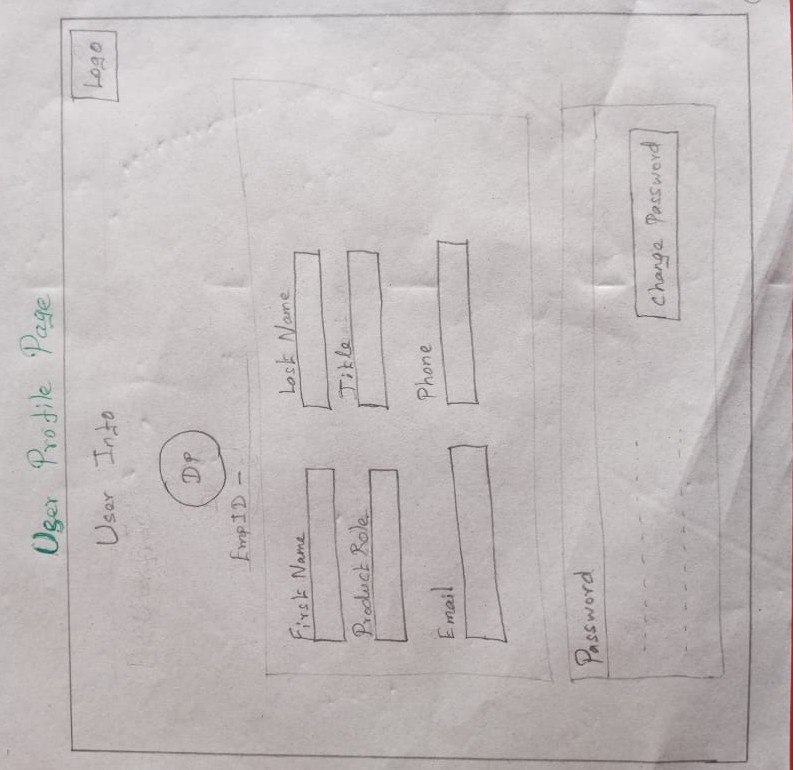 User Profile Page
User Info
Logo
DP
EmpID -
First Name
Last Name
Product Role
Title
Email
Phone
Password
Change Password